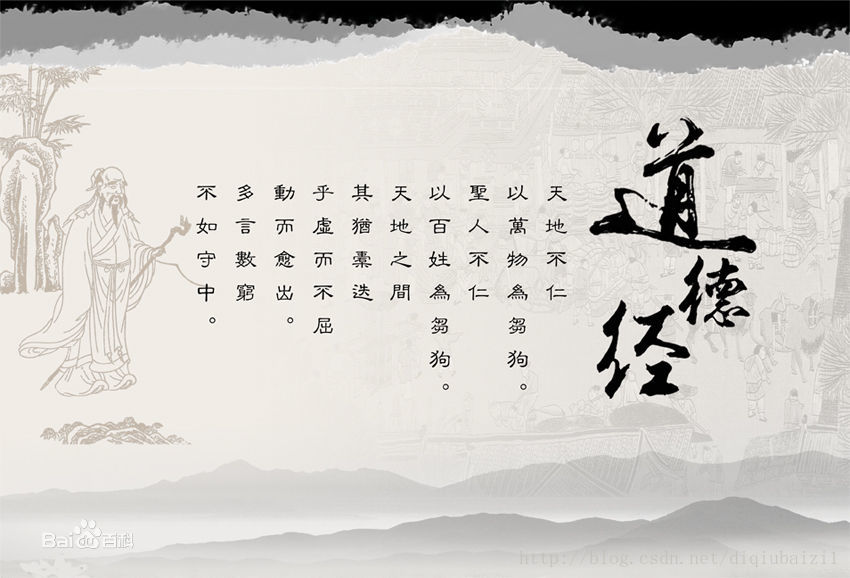 道德经
天地不仁
以萬物為芻狗。
聖人不仁
以百姓為芻狗。
天地之間
其猶橐迭
乎虛而不屈
動而愈出。
多言數窮
不如守中。
Bai百科
http://blog.csdn.net/diqiubaizil